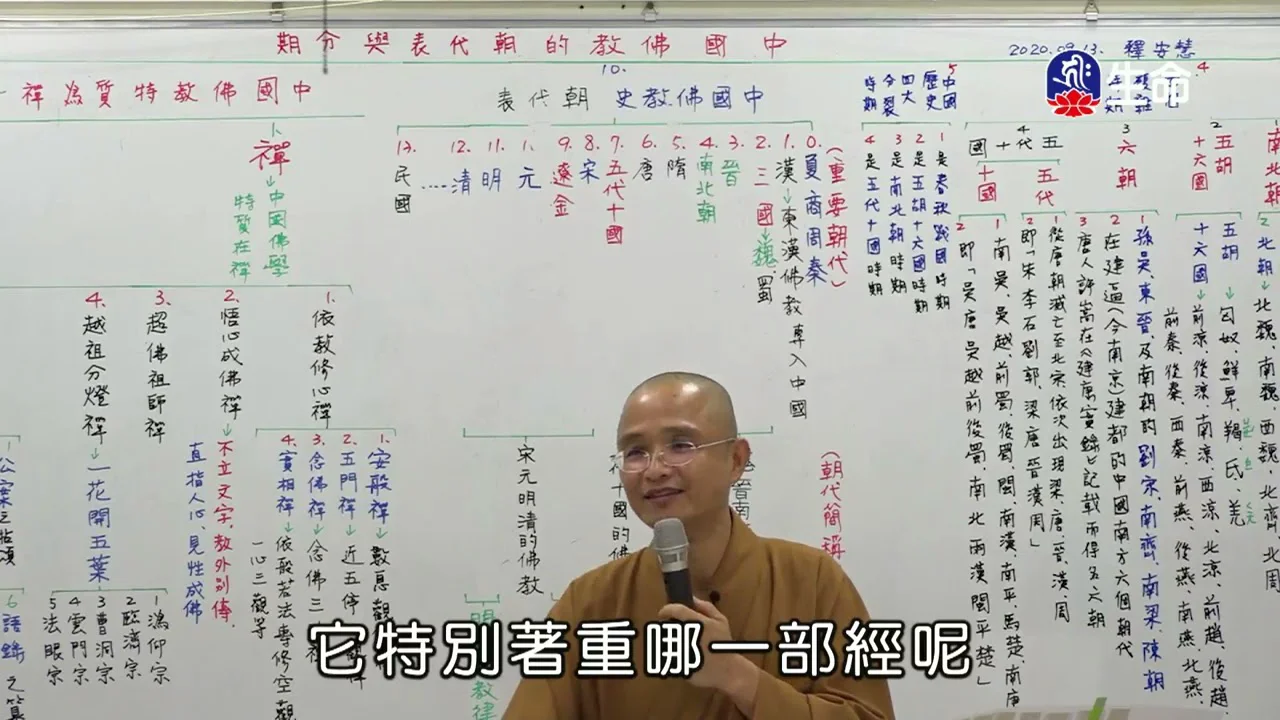 中國佛教的朝代表與分期
2020.09.13. 釋安慧
生命
10.
中國佛教史 朝代表
0.夏商周秦
(重要朝代)
1.漢→東漢佛教專入中國
2.三國→魏蜀
3.晉
4.南北朝
5.隋
6.唐
7.五代十國
8.宋
9.遼金
1.元
11.明
12.清....
13.民國
(朝代簡稱
宋元明清的佛教
中國佛教特質為禪
1.禪
↓中國佛學
特質在禪
1.依教修心禪
2.悟心成佛禪→不立文字,教外別傳,
直指人心,見性成佛
3.超佛祖師禪
4.越祖分燈禪→一花開五葉
1.安般禪→數息觀
2.五門禪→近五停
3.念佛禪→念佛三
4.實相禪→依般若法專修空觀
一心三觀等
1溈仰宗
2臨濟宗
3曹洞宗
4雲門宗
5法眼宗
1公案之拈頌
6語錄之
5中國
歷史
四大
分裂
時期
1是春秋戰國時期
2是五胡十六國時期
3是南北朝時期
4是五代十國時期
4
五代十國
五代
十國
1從唐朝滅亡至北宋,依次出現梁、唐、晉、漢、周
2即「朱李石劉郭,梁唐晉漢周」
1南吳、吳越、前蜀、後蜀、閩、南漢、南平、馬楚、南唐
2即「吳唐吳越前後蜀,南北兩漢閩平楚」
3
六朝
1孫吳、東晉、及南朝的劉宋、南齊、南梁、陳朝
2在建(今南京)建都的中國南方六個朝代
3唐人許嵩在《建康實錄》記載而得名六朝
2
五胡
十六國
五胡→匈奴、鮮卑、羯、氐、羌
十六國→前涼、後涼、南涼、西涼、北涼、前趙、後趙、
前秦、後秦、西秦、前燕、後燕、南燕、北燕、
南北朝
2北朝→北魏、南魏、西魏、北齊、北周
它特別著重哪一部經呢